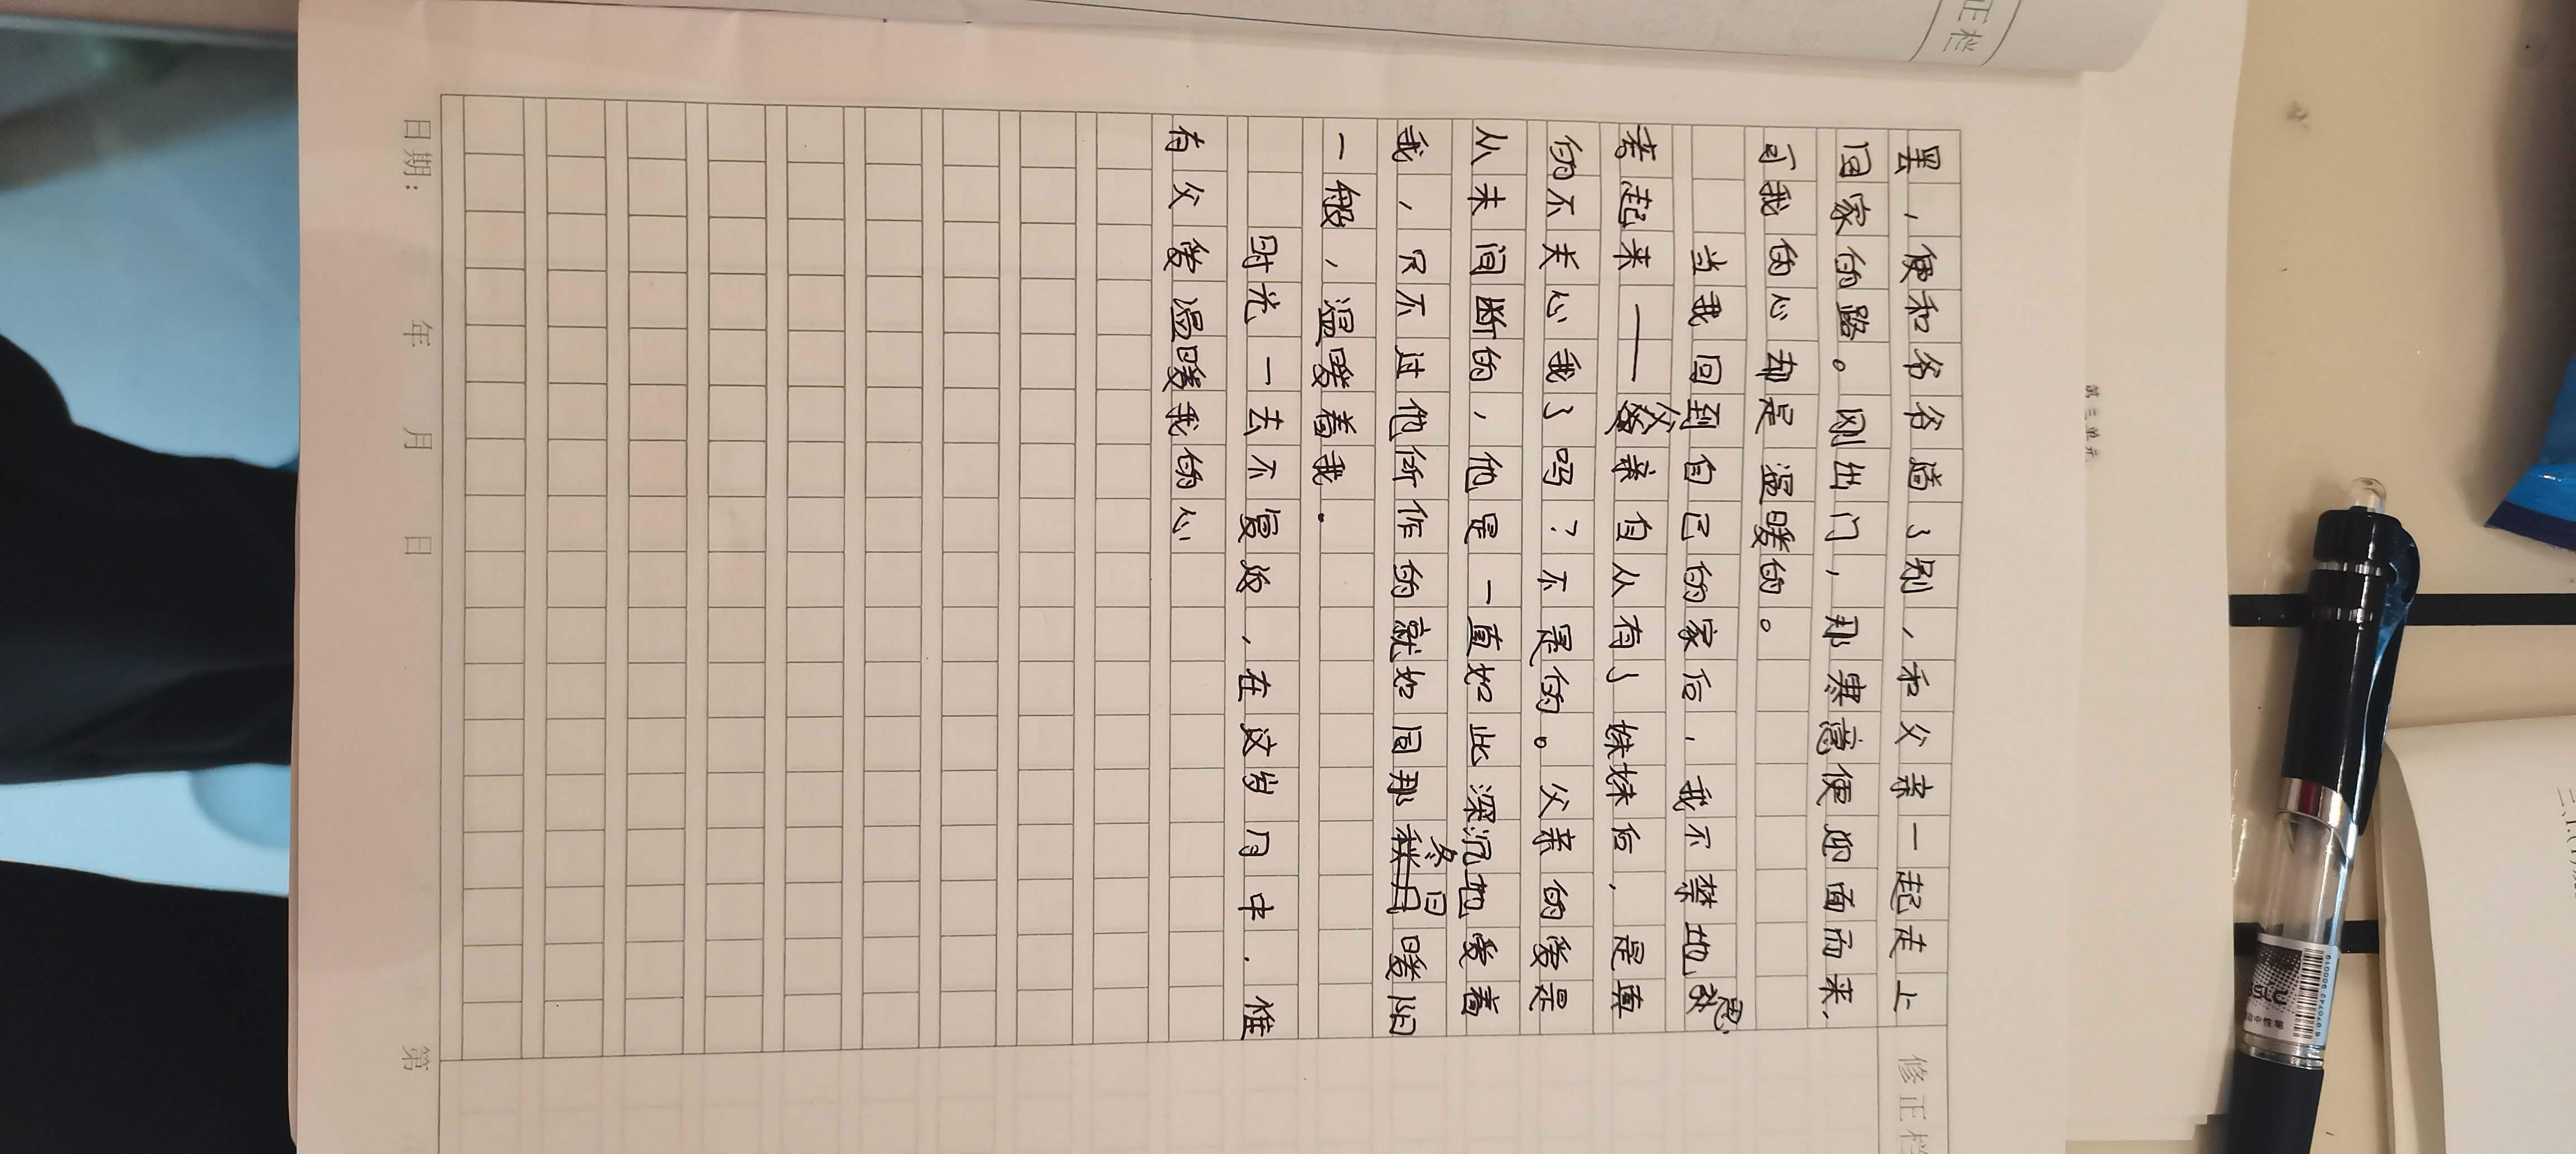 正栏
第三单元
罢，便和爷爷道了别，和父亲一起走上
回家的路。刚出门，那寒意便迎面而来，
可我的心却是温暖的。
当我回到自己的家后，我不禁地思
考起来——父亲自从有了妹妹后，是真
的不关心我了吗？不是的。父亲的爱是
从未间断的，他是一直如此深沉地爱着
我，只不过他所作的就如同那冬日暖阳
一般，温暖着我。
时光一去不复返，在这岁月中，惟
有父爱温暖我的心
修正栏
日期： 年 月 日 第